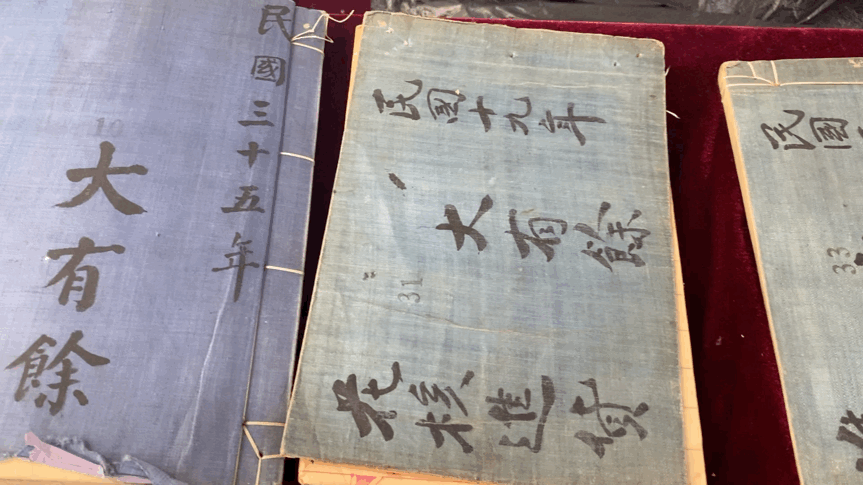 民國三十五年
10
大有餘
民国十九年
大有餘
31
花核進貨
民国
33